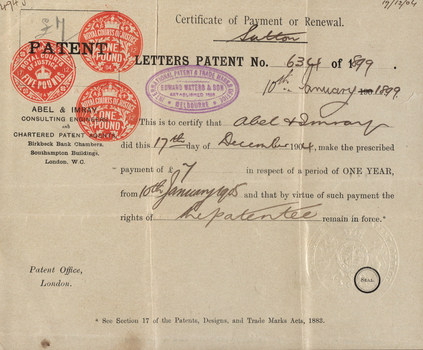 17/12/04
£7
Certificate of Payment or Renewal.
Sutton
PATENT
LETTERS PATENT No. 6364 of 1899.
10th January 1899
ROYAL COURTS OF JUSTICE
ONE POUND
ROYAL COURTS OF JUSTICE
FIVE POUNDS
ROYAL COURTS OF JUSTICE
ONE POUND
PATENT & TRADE MARKS
EDWARD WATERS & SON
ESTABLISHED
MELBOURNE
ABEL & IMRAY,
CONSULTING ENGINEERS
AND
CHARTERED PATENT AGENTS
Birkbeck Bank Chambers,
Southampton Buildings,
London, W.C.
This is to certify that Abel & Imray
did this 17th day of December 1904, make the prescribed
payment of £7 in respect of a period of ONE YEAR,
from 10th January 1905 and that by virtue of such payment the
rights of the patentee remain in force.*
Patent Office,
London.
SEAL
* See Section 17 of the Patents, Designs, and Trade Marks Acts, 1883.